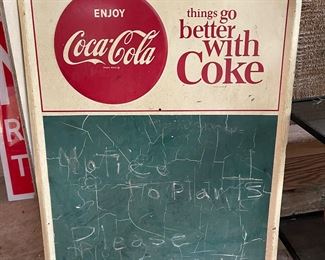 ENJOY
Coca-Cola
things go
better
with
Coke
Notice
to Plants
Please
R
T